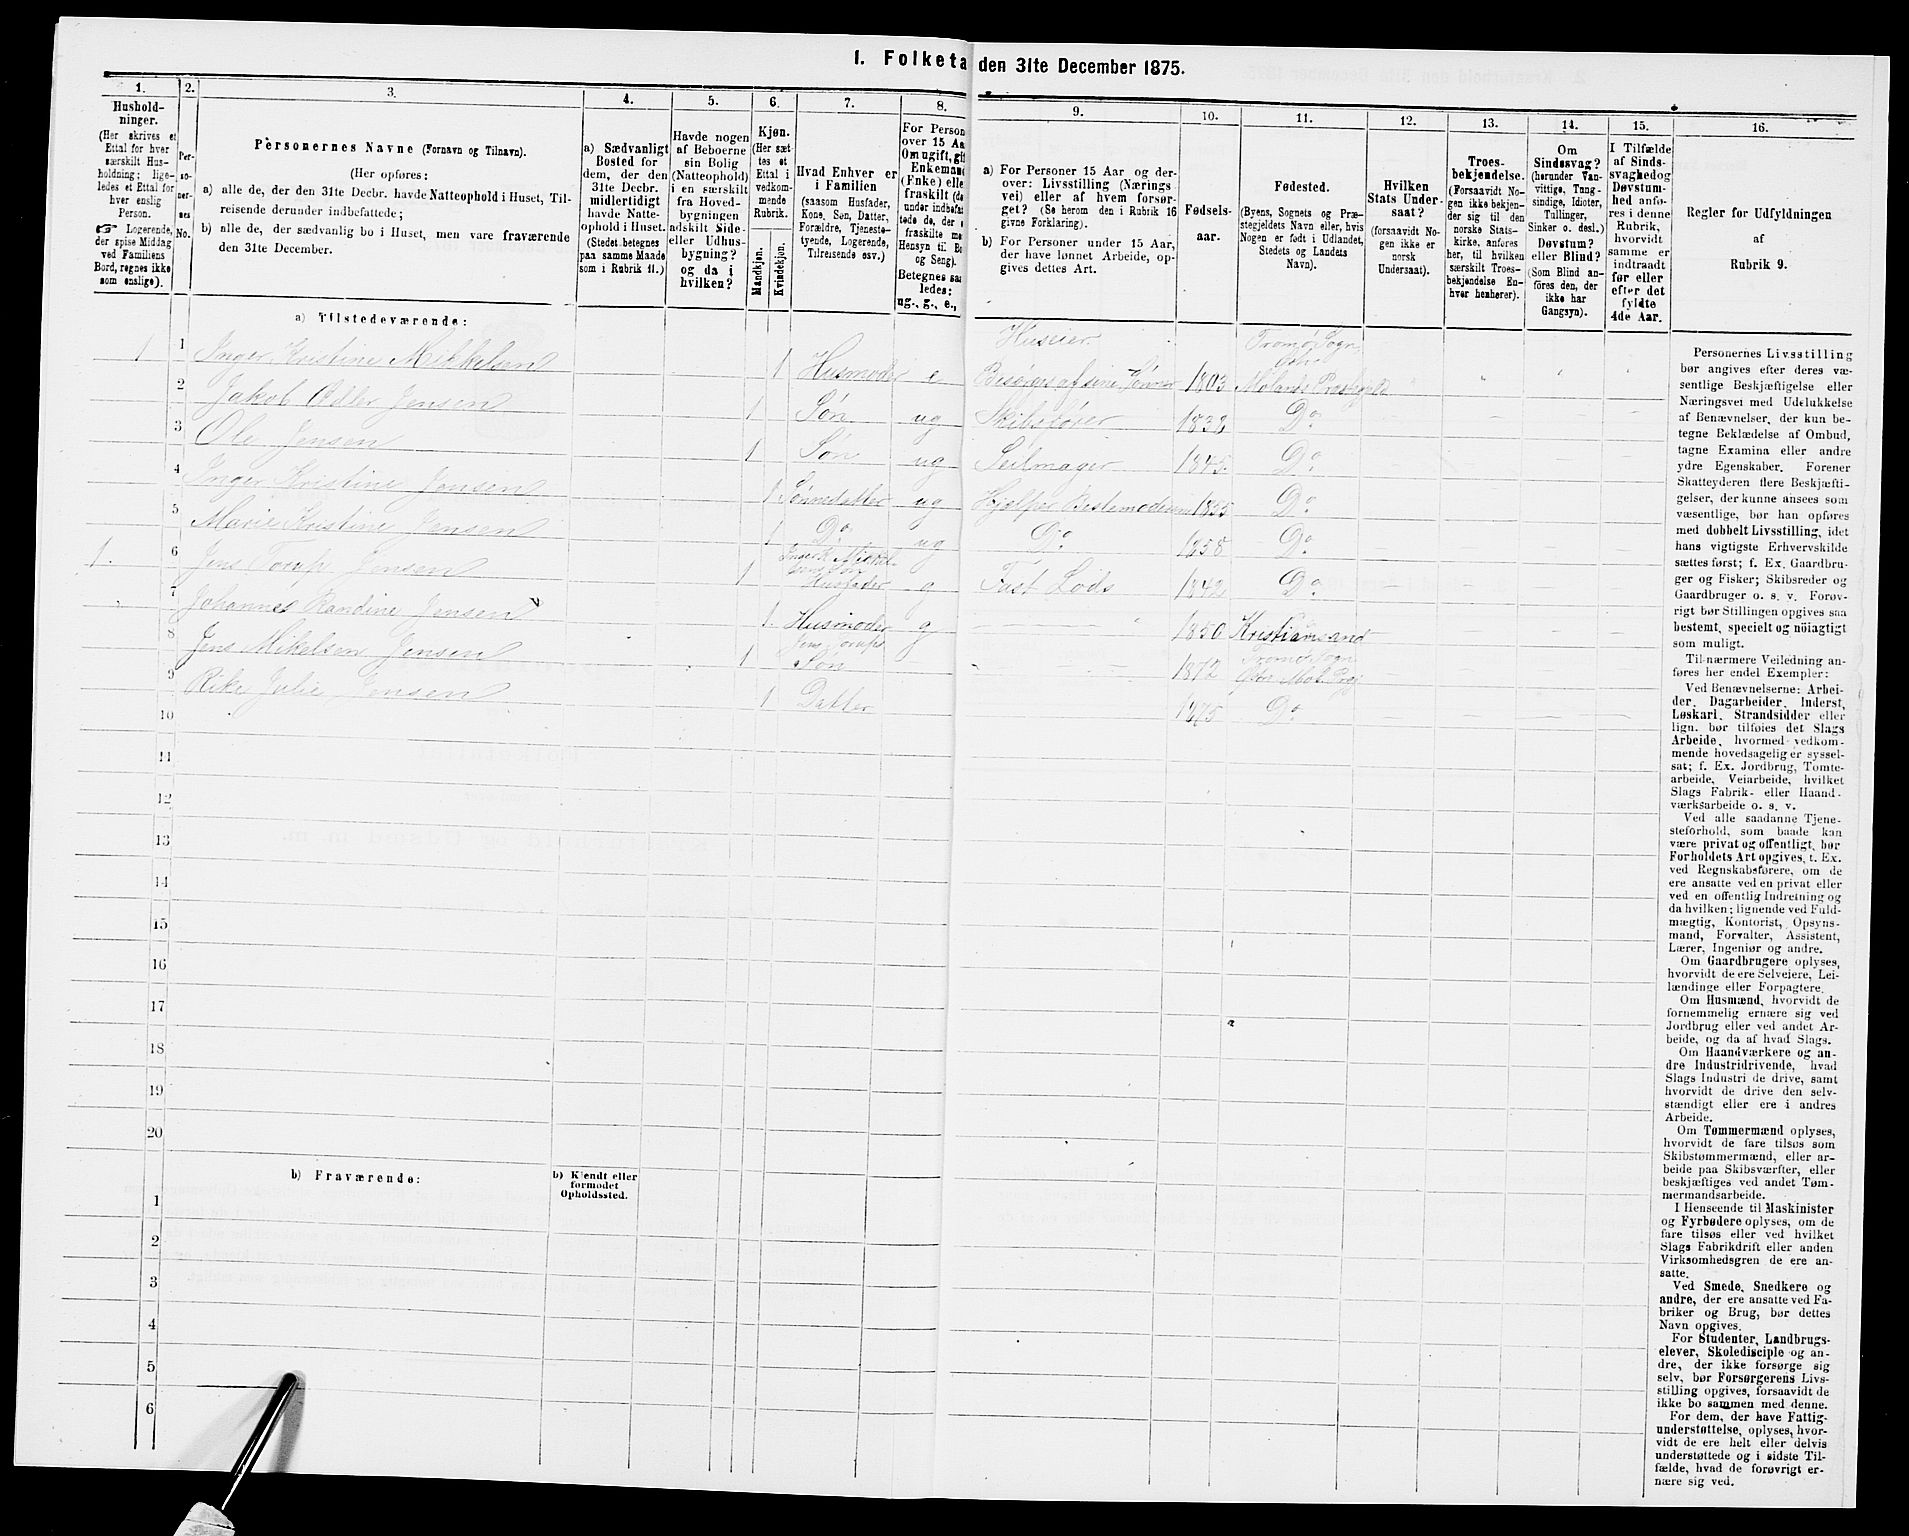 1. Folketa den 31te December 1875.
1.
Hushold-
ninger.
(Her skrives et
Ettal for hver
særskilt Hus-
holdning; lige-
ledes et Ettal for
hver enslig
Person.
☞ Logerende,
der spise Middag
ved Familiens
Bord, regnes ikke
som enslige).
2.
Per-
so-
ner-
nes
No.
3.
Personernes Navne (Fornavn og Tilnavn).
(Her opføres:
a) alle de, der den 31te Decbr. havde Natteophold i Huset, Til-
reisende derunder indbefattede;
b) alle de, der sædvanlig bo i Huset, men vare fraværende
den 31te December.
4.
a) Sædvanligt
Bosted for
dem, der den
31te Decbr.
midlertidigt
havde Natte-
ophold i Huset.
(Stedet betegnes
paa samme Maade
som i Rubrik 11.)
5.
Havde nogen
af Beboerne
sin Bolig
(Natteophold)
i en særskilt
fra Hoved-
bygningen
adskilt Side-
eller Udhus-
bygning?
og da i
hvilken?
6.
Kjøn.
(Her sæt-
tes et
Ettal i
vedkom-
mende
Rubrik.
Mandkjøn.
Kvindekjøn.
7.
Hvad Enhver er
i Familien
(saasom Husfader,
Kone, Søn, Datter,
Forældre, Tjeneste-
tyende, Logerende,
Tilreisende osv.)
8.
For Person
over 15 Aa
Om ugift, gif
Enkemand
(Enke) elle
fraskilt (da
under indbefat-
tede de, der
fraskilte me
Hensyn til Bo
og Seng).
Betegnes saa
ledes:
ug., g., e.,
9.
a) For Personer 15 Aar og der-
over: Livsstilling (Nærings
vei) eller af hvem forsør-
get? (Se herom den i Rubrik 16
givne Forklaring).
b) For Personer under 15 Aar,
der have lønnet Arbeide, op-
gives dettes Art.
10.
Fødsels-
aar.
11.
Fødested.
(Byens, Sognets og Præ-
stegjeldets Navn eller, hvis
Nogen er født i Udlandet,
Stedets og Landets
Navn).
12.
Hvilken
Stats Under-
saat?
(forsaavidt No-
gen ikke er
norsk
Undersaat).
13.
Troes-
bekjendelse.
(Forsaavidt No-
gen ikke bekjen-
der sig til den
norske Stats-
kirke, anføres
her, til hvilken
særskilt Troes-
bekjendelse En-
hver henhører).
14.
Om
Sindssvag?
(herunder Van-
vittige, Tung-
sindige, Idioter,
Tullinger,
Sinker o. desl.)
Døvstum?
eller Blind?
(Som Blind an-
føres den, der
ikke har
Gangsyn).
15.
I Tilfælde
af Sinds-
svaghed og
Døvstum-
hed anfø-
res i denne
Rubrik,
hvorvidt
samme er
indtraadt
før eller
efter det
fyldte
4de Aar.
16.
Regler for Udfyldningen
af
Rubrik 9.
a) Tilstedeværende:
1 1 Inger Kristine Mikkelsen 1 Husmoder e Huseier Besørges af sine Sønner 1803 Tromø Sogn Østr. Molands Præstegjeld
2 Jakob Odler Jensen 1 Søn ug Skibsfører 1838 Do
3 Ole Jensen 1 Søn ug Seilmager 1845. Do
4 Inger Kristine Jensen 1 Sønnedatter ug Hjælper Bestemoderen 1855 Do
5 Marie Kristine Jensen 1 Do ug Do 1858 Do
1. 6 Jens Torup Jensen 1 Inger K. Mikkel-
sens Søn
Husfader g Fast Lods 1842 Do
7 Johannes Randine Jensen 1. Husmoder g 1850 Kristiansand
8 Jens Mikelsen Jensen 1 Jens Torups
Søn 1872 Tromø Sogn
Østr. Mol. Prgj
9 Rike Julie Jensen 1 Datter 1875 Do
10
11
12
13
14
15
16
17
18
19
20
b) Fraværende:
b) Kjendt eller
formodet
Opholdssted.
1
2
3
4
5
6
Personernes Livsstilling
bør angives efter deres væ-
sentlige Beskjæftigelse eller
Næringsvei med Udelukkelse
af Benævnelser, der kun be-
tegne Beklædelse af Ombud,
tagne Examina eller andre
ydre Egenskaber. Forener
Skatteyderen flere Beskjæfti-
gelser, der kunne ansees som
væsentlige, bør han opføres
med dobbelt Livsstilling, idet
hans vigtigste Erhvervskilde
sættes først; f. Ex. Gaardbru-
ger og Fisker; Skibsreder og
Gaardbruger o. s. v. Forøv-
rigt bør Stillingen opgives saa
bestemt, specielt og nöiagtigt
som muligt.
Til nærmere Veiledning an-
føres her endel Exempler:
Ved Benævnelserne: Arbei-
der, Dagarbeider, Inderst,
Løskarl, Strandsidder eller
lign. bør tilføies det Slags
Arbeide, hvormed vedkom-
mende hovedsagelig er syssel-
sat; f. Ex. Jordbrug, Tomte-
arbeide, Veiarbeide, hvilket
Slags Fabrik- eller Haand-
værksarbeide o. s. v.
Ved alle saadanne Tjene-
steforhold, som baade kan
være privat og offentligt, bør
Forholdets Art opgives, t. Ex.
ved Regnskabsførere, om de
ere ansatte ved en privat eller
ved en offentlig Indretning og
da hvilken; lignende ved Fuld-
mægtig, Kontorist, Opsyns-
mand, Forvalter, Assistent,
Lærer, Ingeniør og andre.
Om Gaardbrugere oplyses,
hvorvidt de ere Selveiere, Lei-
lændinge eller Forpagtere.
Om Husmænd, hvorvidt de
fornemmelig ernære sig ved
Jordbrug eller ved andet Ar-
beide, og da af hvad Slags.
Om Haandværkere og an-
dre Industridrivende, hvad
Slags Industri de drive, samt
hvorvidt de drive den selv-
stændigt eller ere i andres
Arbeide.
Om Tømmermænd oplyses,
hvorvidt de fare tilsøs som
Skibstømmermænd, eller ar-
beide paa Skibsværfter, eller
beskjæftiges ved andet Tøm-
mermandsarbeide.
I Henseende til Maskinister
og Fyrbødere oplyses, om de
fare tilsøs eller ved hvilket
Slags Fabrikdrift eller anden
Virksomhedsgren de ere an-
satte.
Ved Smede, Snedkere og
andre, der ere ansatte ved Fa-
briker og Brug, bør dettes
Navn opgives.
For Studenter, Landbrugs-
elever, Skoledisciple og an-
dre, der ikke forsørge sig
selv, bør Forsørgerens Livs-
stilling opgives, forsaavidt de
ikke bo sammen med denne.
For dem, der have Fattig-
understøttelse, oplyses, hvor-
vidt de ere helt eller delvis
understøttede og i sidste Til-
fælde, hvad de forøvrigt er-
nære sig ved.